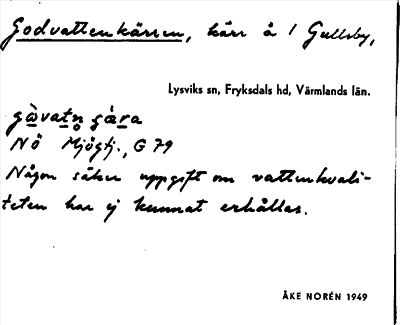 Godvattenkärren, kärr å 1 Gullsby,
Lysviks sn, Fryksdals hd, Värmlands län.
gàvatn̥ gæ̀ra
NÖ Mjögsj., G 79
Någon säker uppgift om vattenkvali-
teten har ej kunnat erhållas.
ÅKE NORÉN 1949